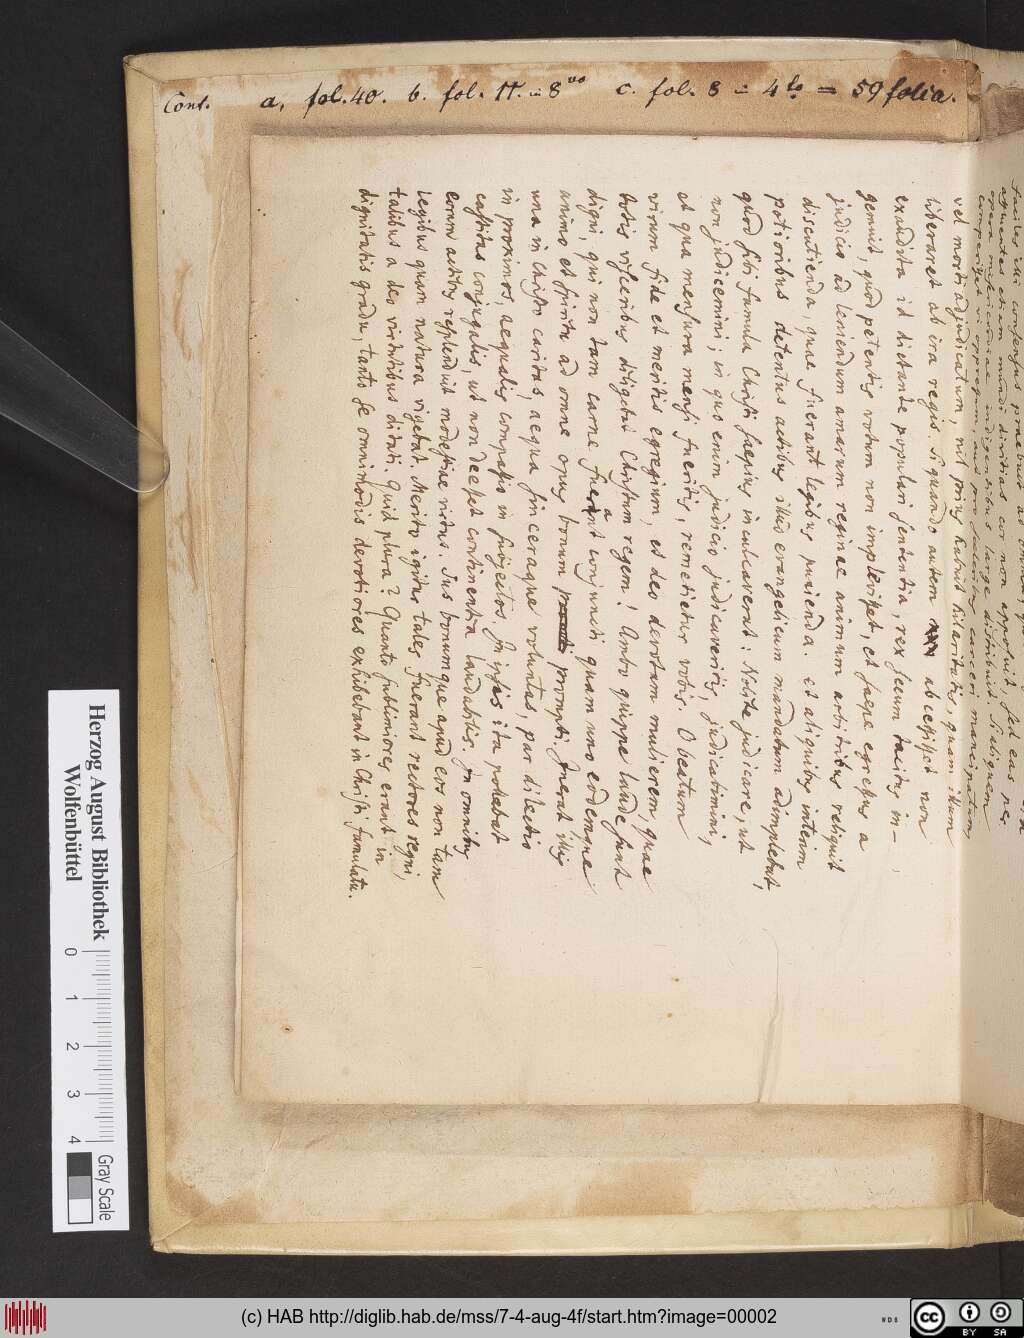 Cont. a. fol. 40. b. fol. 11. = 8vo c. fol. 8 = 4to = 59 folia.
faciles illi consensus praebuit ad
affluentes etiam mundi divitias cor non apposuit, sed eas per
opera misericordiae indigentibus large distribuit. Si aliquem
comperisset vi oppressum aut pro sceleribus carceri mancipatum
vel morti adjudicatum, nil prius habuit hilaritatis, quam illum
liberaret ab ira regis. Si quando autem ab cessisset non
exaudita id dictante populari sententia, rex secum tacitus in-
gemuit, quod petentis votum non implevisset, et saepe egressus a
judicio ad leniendum amarum reginae animum arbitribus reliquit
discutienda, quae fuerant legibus punienda. et aliquibus interim
potioribus detentus actibus illud evangelicum mandatum adimplebat,
quod sibi famula Christi saepius inculcaverat: Nolite judicare, ut
non judicemini; in quo enim judicio judicaveritis, judicabimini,
et qua mensura mensi fueritis, remetietur vobis. O beatum
virum fide et meritis egregium, et deo devotam mulierem, quae
totis visceribus diligebat Christum regem! Ambo quippe laude sunt
digni, qui non tam carne fuerant conjuncti quam uno eodemque
animo et spiritu ad omne opus bonum prompti. Inerat illis
una in Christo caritas, aequa sinceraque voluntas, par dilectio
in proximos, aequalis compassio in subjectos. In ipsis ita pollebat
castitas conjugalis, ut non deesset continentia laudabilis. In omnibus
eorum actibus resplenduit modestiae virtus. Jus bonumque apud eos non tam
legibus quam natura vigebat. Merito igitur tales fuerant rectores regni,
talibus a deo virtutibus ditati. Quid plura? Quanto sublimiores erant in
dignitatis gradu, tanto se omnimodis devotiores exhibebant in Christi famulatu.
Herzog August Bibliothek
Wolfenbüttel
0 1 2 3 4
Gray Scale
(c) HAB http://diglib.hab.de/mss/7-4-aug-4f/start.htm?image=00002
cc BY SA